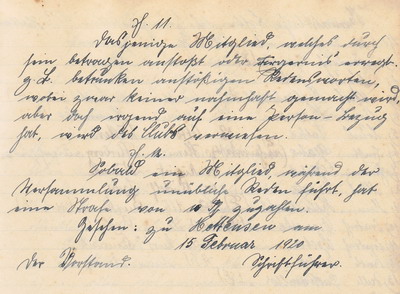 §. 11.
Dasjenige Mitglied, welches durch
sein betragen anstoßt oder Ärgernis erregt.
z.B. betrunken anstößigen Redensworten,
wobei zwar keiner namhaft gemacht wird,
aber doch irgend auf eine Person Bezug
hat, wird des Clubs verwiesen.
§. 12.
Sobald ein Mitglied, während der
Versammlung unübliche Reden führt, hat
eine Strafe von 10 zuzahlen.
Geschen: zu am
15 Februar 1920
Der Vorstand. Schriftführer.